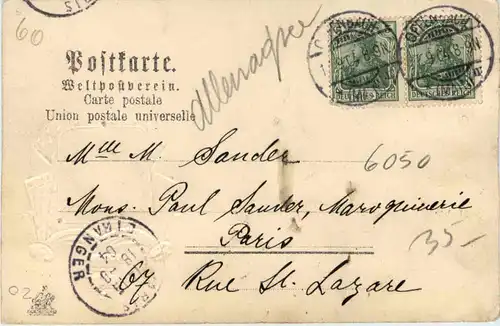 60
Postkarte.
Weltpostverein.
Carte postale
Union postale universelle
Allemagne
Mlle M. Sander
6050
Mons. Paul Sander, Maroquinerie
Paris
35-
67 Rue St. Lazare
ETRANGER
OFFENBACH
DEUTSCHES REICH